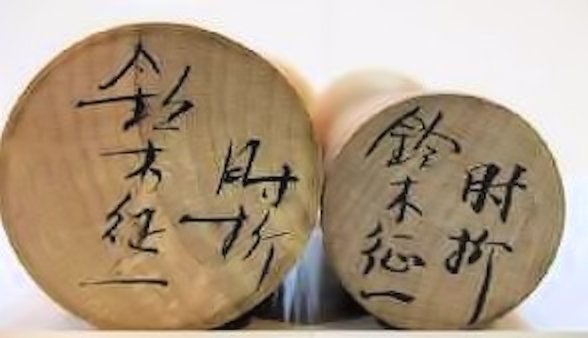 肘折
鈴木征一
肘折
鈴木征一